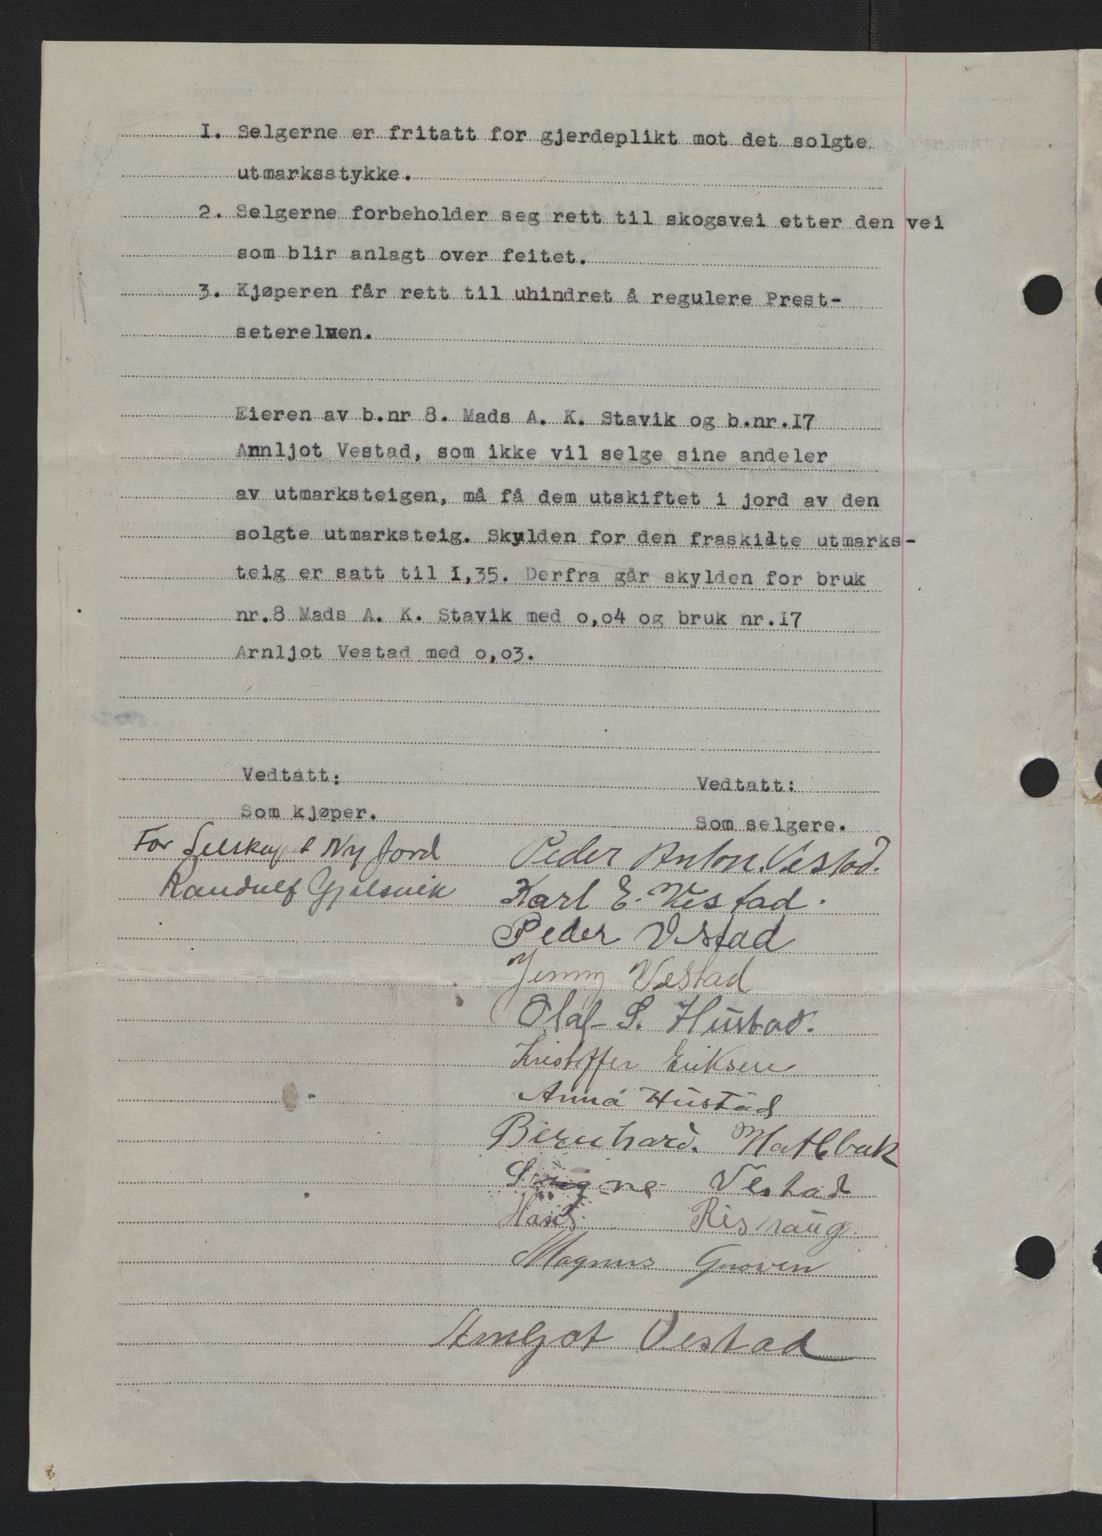 1. Selgerne er fritatt for gjerdeplikt mot det solgte
utmarksstykke.
2. Selgerne forbeholder seg rett til skogsvei etter den vei
som blir anlagt over feitet.
3. Kjøperen får rett til uhindret å regulere Prest-
seterelven.
Eieren av b.nr 8. Mads A. K. Stavik og b.nr.17
Arnljot Vestad, som ikke vil selge sine andeler
av utmarksteigen, må få dem utskiftet i jord av den
solgte utmarksteig. Skylden for den fraskilte utmarks-
teig er satt til 1,35. Derfra går skylden for bruk
nr.8 Mads A. K. Stavik med o,o4 og bruk nr.17
Arnljot Vestad med o,o3.
Vedtatt:
Som kjøper.
For Selskapet Ny Jord
Randulf Gjelsvik
Vedtatt:
Som selgere.
Peder Anton Vestad.
Karl E. Vestad.
Peder Vestad
Jenny Vestad
Olaf S. Hustad.
Kristoffer Eriksen
Anna Hustad
Bernhard. Hatlbak
Signe Vestad
Hans Rishaug
Magnus Groven
Arnljot Vestad